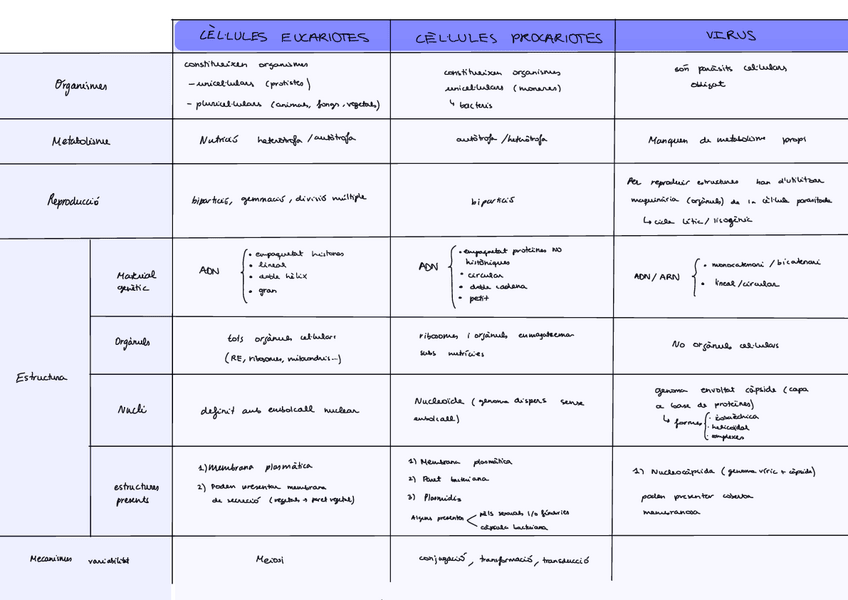 CÈL·LULES EUCARIOTES
CÈL·LULES PROCARIOTES
VIRUS
Organismes
constitueixen organismes
- unicel·lulars (protistes)
- pluricel·lulars (animas, fongs, vegetals)
constitueixen organismes
unicel·lulars (moneres)
↳ bacteris
són paràsits cel·lulars
obligat
Metabolisme
Nutrició heteròtrofa / autòtrofa
autòtrofa / heteròtrofa
Manquen de metabolisme propi
Reproducció
bipartició, gemmació, divisió múltiple
bipartició
Per reproduir estructures han d'utilitzar
maquinària (orgànuls) de la cèl·lula parasitada
↳ cicle lític / lisogènic
Estructura
Material
genètic
ADN
• empaquetat histones
• lineal
• doble hèlix
• gran
ADN
• empaquetat proteïnes NO
històniques
• circular
• doble cadena
• petit
ADN / ARN
• monocatenari / bicatenari
• lineal / circular
Orgànuls
tots orgànuls cel·lulars
(RE, ribosomes, mitocondris...)
ribosomes i orgànuls emmagatzeman
subs nutrícies
No orgànuls cel·lulars
Nucli
definit amb embolcall nuclear
Nucleoide (genoma dispers sense
embolcall)
genoma envoltat càpside (capa
a base de proteïnes)
↳ formes
• icosaèdrica
• helicoïdal
• complexes
estructures
presents
1) Membrana plasmàtica
2) Poden presentar membrana
de secreció (vegetals → paret vegetal)
1) Membrana plasmàtica
2) Paret bacteriana
3) Plasmidis
Alguns presenten
pèls sexuals i/o fímbries
càpsula bacteriana
1) Nucleocàpsida (genoma víric + càpsida)
poden presentar coberta
membranosa
Mecanismes variabilitat
Meiosi
conjugació, transformació, transducció